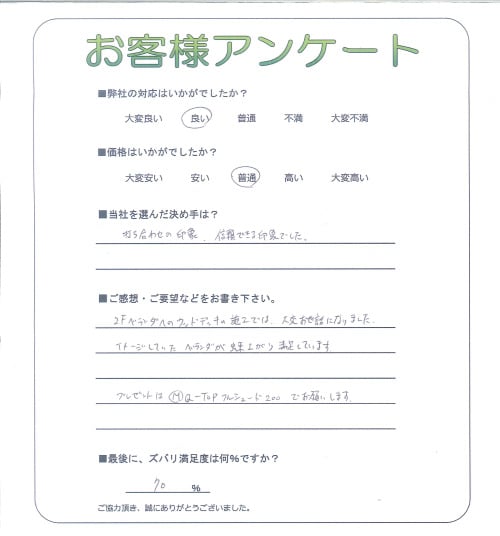 お客様アンケート
■弊社の対応はいかがでしたか？
大変良い 良い 普通 不満 大変不満
■価格はいかがでしたか？
大変安い 安い 普通 高い 大変高い
■当社を選んだ決め手は？
打ち合わせの印象、信頼できる印象でした。
■ご感想・ご要望などをお書き下さい。
2Fベランダへのウッドデッキの施工では、大変お世話になりました。
イメージしていたベランダが出来上がり満足しています
プレゼントは Ⓜ Q-TOP フルシェード200 でお願いします。
■最後に、ズバリ満足度は何%ですか？
90 %
ご協力頂き、誠にありがとうございました。